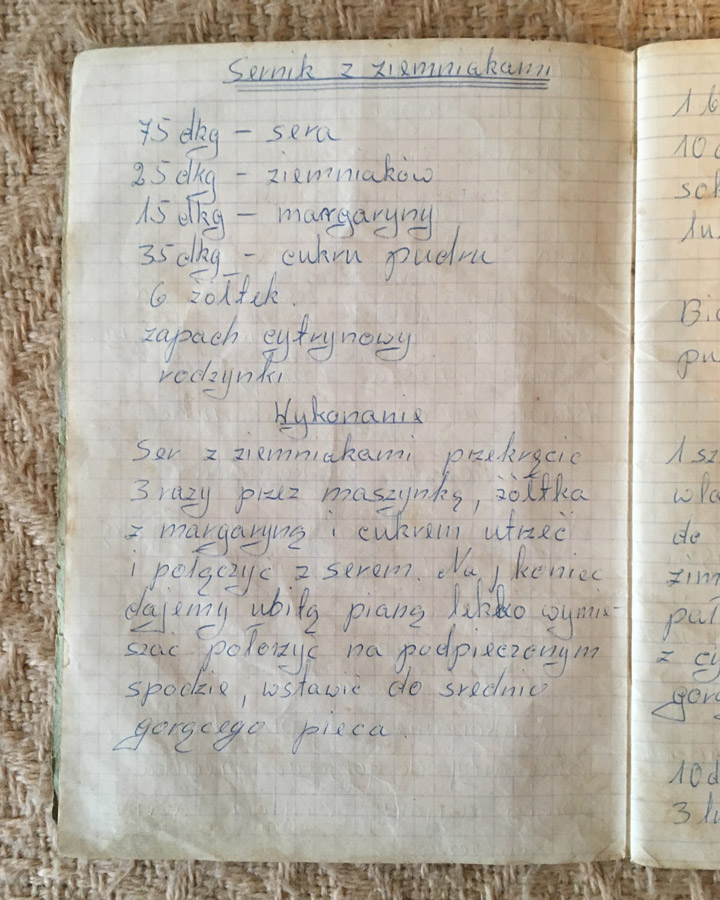 Sernik z ziemniakami
75 dkg – sera
25 dkg - ziemniaków
15 dkg – margaryny
35 dkg - cukru pudru
6 żółtek.
zapach cytrynowy
rodzynki
Wykonanie
Ser z ziemniakami przekręcic
3 razy przez maszynkę, żółtka
z margaryną i cukrem utrzeć
i połączyc z serem. Na koniec
dajemy ubitą pianę lekko wymie-
szać połorzyć na podpieczonym
spodzie, wstawić do srednio
gorącego pieca.
1
10
1
Bi
pu
1 sz
do
z cy
10 d
3 ł